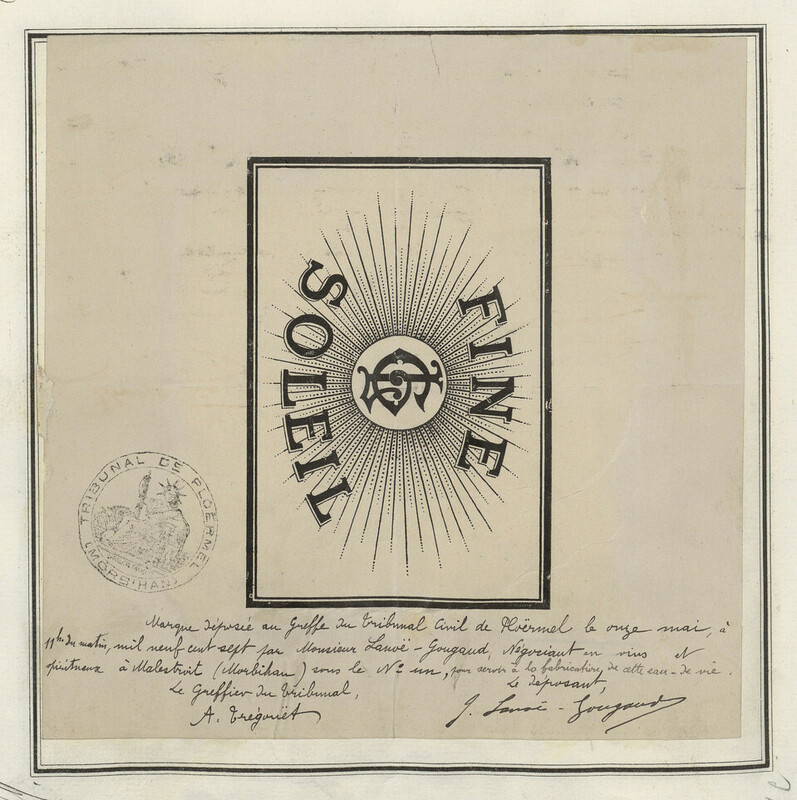 FINE
SOLEIL
TRIBUNAL DE PLOËRMEL
(MORBIHAN)
Marque déposée au Greffe du Tribunal Civil de Ploërmel le onze mai, à
11hes du matin, mil neuf cent sept par Monsieur Lanoë-Gougaud, Négociant en vins et
spiritueux à Malestroit (Morbihan) sous le No un, pour servir à la fabrication, de cette eau-de-vie.
Le Greffier du Tribunal,
Le déposant,
A. Trégouët
J. Lanoë-Gougaud